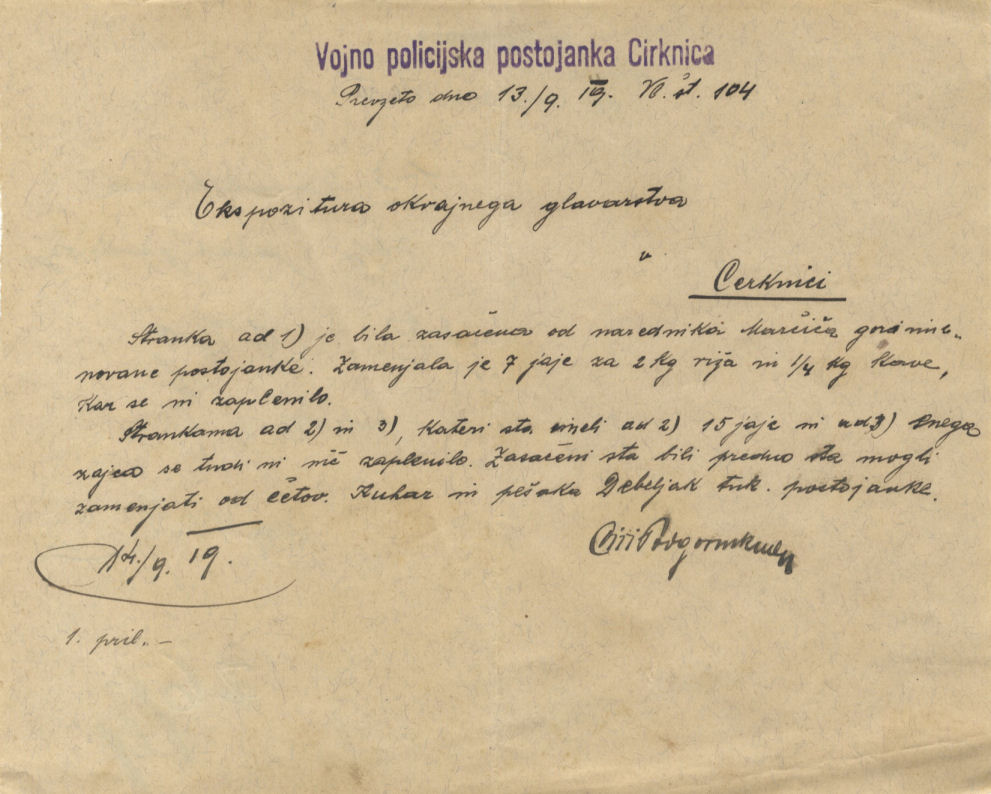 Vojno policijska postojanka Cirknica
Prevzeto dne 13./9. 19. št. 104
Ekspozitura okrajnega glavarstva
v
Cerknici
Stranka ad 1) je bila zasačena od narednika Marčiča gori ime-
novane postojanke. Zamenjala je 7 jajc za 2 kg riža in 1/4 kg kave,
kar se ni zaplenilo.
Strankama ad 2) in 3), kateri sta imeli ad 2) 15 jajc in ad 3) enega
zajca se tudi ni nič zaplenilo. Zasačeni sta bili predno sta mogli
zamenjati od četov. Kuhar in pešaka Debeljak tuk. postojanke.
14./9. 19.
1. pril. –